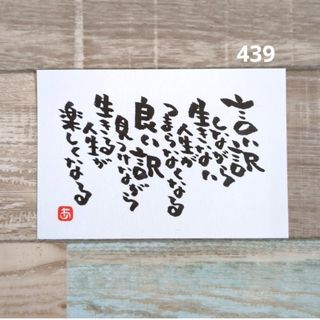 439
言い訳
しながら
生きないと
人生が
つまらなくなる
良い訳
見つけながら
生きる
人生が
楽しくなる
あ